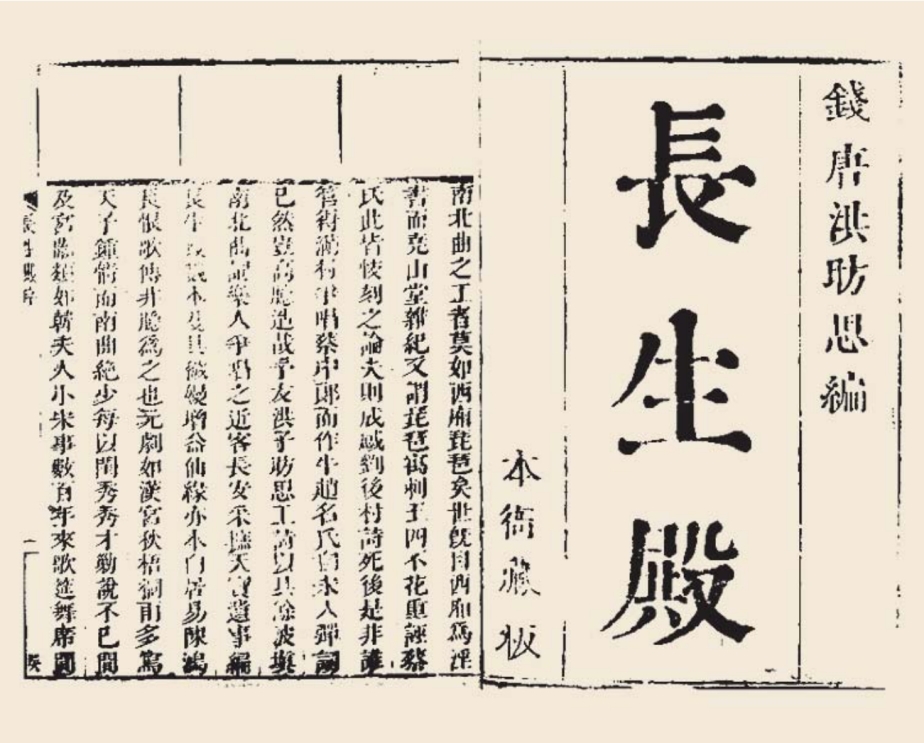 錢唐洪昉思編
長生殿
本衙藏板
南北曲之工者莫如西廂琵琶矣世旣目西廂爲淫
書而堯山堂雜紀又謂琵琶寓刺王四不花重誣蔡
氏此皆忮刻之論夫則成感劉後村詩死後是非誰
管得滿村爭唱蔡中郎而作牛趙名氏自宋人彈詞
已然豈高臆造哉予友洪子昉思工詩以其餘波塡
南北曲詞樂人爭唱之近客長安采摭天寶遺事編
長生殿戲本芟其穢嫚增益仙緣亦本白居易陳鴻
長恨歌傳非臆爲之也元劇如漢宮秋梧桐雨多寫
天子鍾情而南曲絶少每以閨秀秀才勦說不已間
及宮闈類如韓夫人小宋事數百年來歌筵舞席間
長生殿序
一